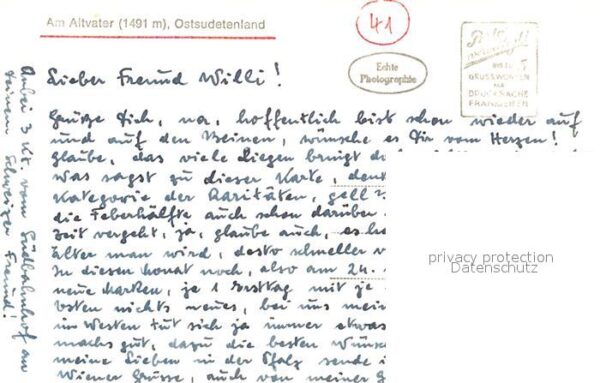 Am Altvater (1491 m), Ostsudetenland
41
Echte
Photographie
BIS ZU 5
GRUSSWORTEN
ALS
DRUCKSACHE
FRANKIEREN
Lieber Freund Willi!
Grüße Dich, na, hoffentlich bist schon wieder auf
und auf den Beinen, wünsche es Dir vom Herzen!
glaube, das viele Liegen bringt
was sagst zu dieser Karte, denk
Kategorie der Raritäten, gell?
die Feberhälfte auch schon darüber.
Zeit vergeht, ja, glaube auch,
älter man wird, desto schneller
In diesen Monat noch, also am 24.
neue Marken, je 1 Ersttag mit je
Osten nichts neues, bei uns
im Westen tut sich ja immer etwas
machs gut, dazu die besten
meine Lieben in der Pfalz sende
Wiener Grüsse, auch von meiner
Anbei 3 Kt. vom Südbahnhof an
Deinem Schweizer Freund!
privacy protection
Datenschutz